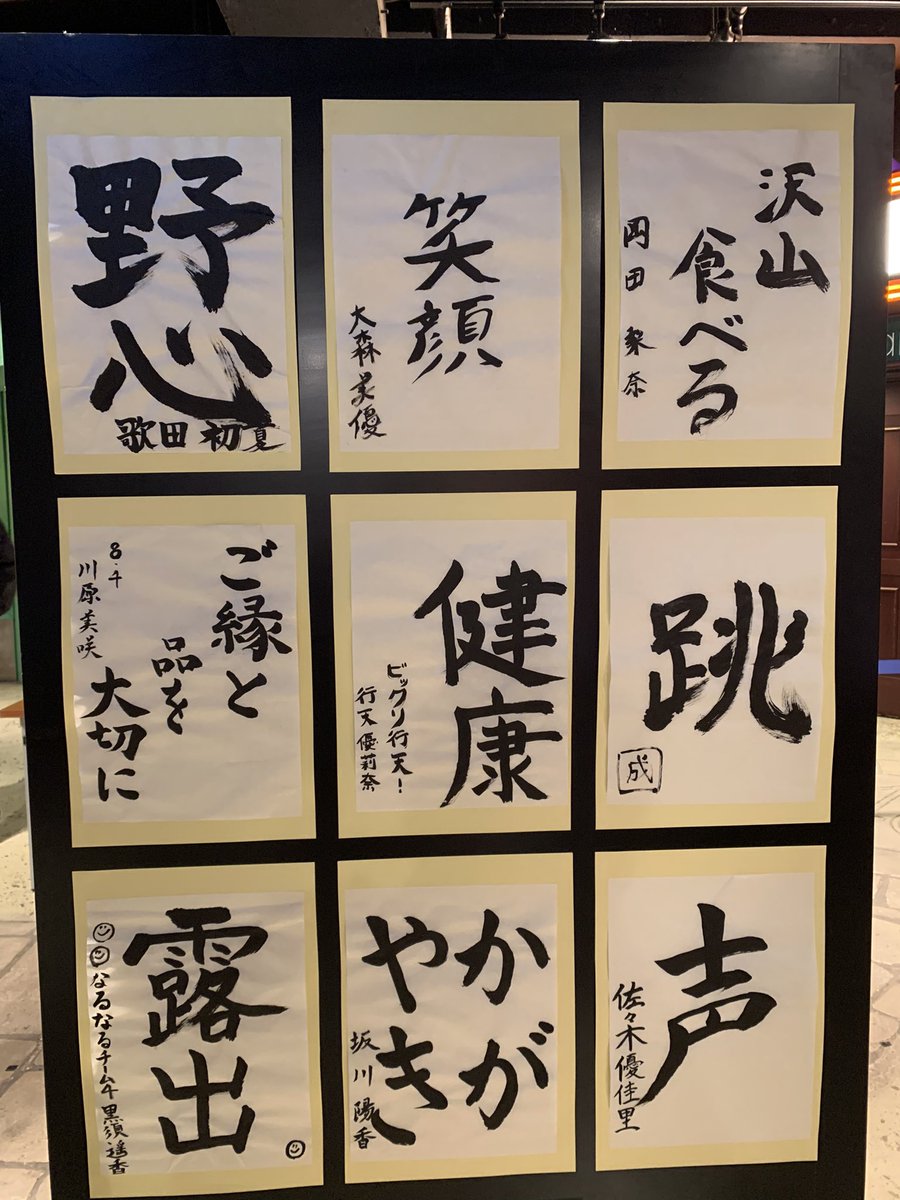 野心
歌田 初夏
笑顔
大森美優
沢山
食べる
岡田 梨奈
ご縁と
品を
大切に
8・4
川原美咲
健康
ビックリ行天!
行天優莉奈
跳
成
露出
なるなるチーム4 黒須遥香
かが
やき
坂川陽香
声
佐々木優佳里